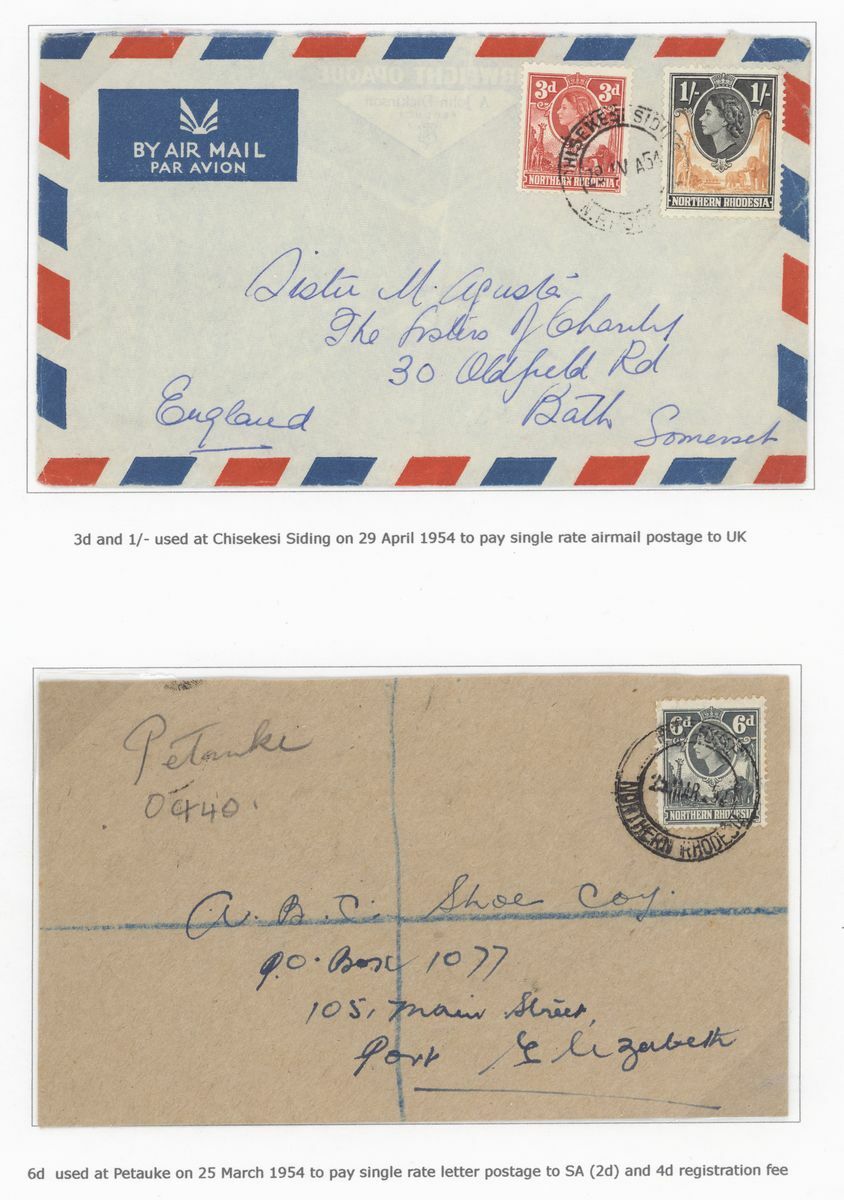 BY AIR MAIL
PAR AVION
3d 3d
NORTHERN RHODESIA
1/- 1/-
NORTHERN RHODESIA
CHISEKESI SIDING
A54
Sister M. Agusta
The Sisters of Charity
30 Oldfield Rd
Bath
Somerset
England
3d and 1/- used at Chisekesi Siding on 29 April 1954 to pay single rate airmail postage to UK
Petauke
0440.
6d 6d
NORTHERN RHODESIA
NORTHERN RHODESIA
A. B. C. Shoe Coy.
P.O. Box 1077
105, Main Street,
Port Elizabeth
6d used at Petauke on 25 March 1954 to pay single rate letter postage to SA (2d) and 4d registration fee